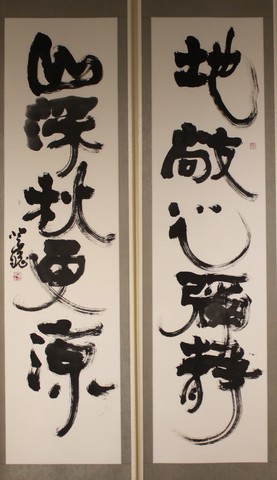 地敞心彌靜
山深秋更涼